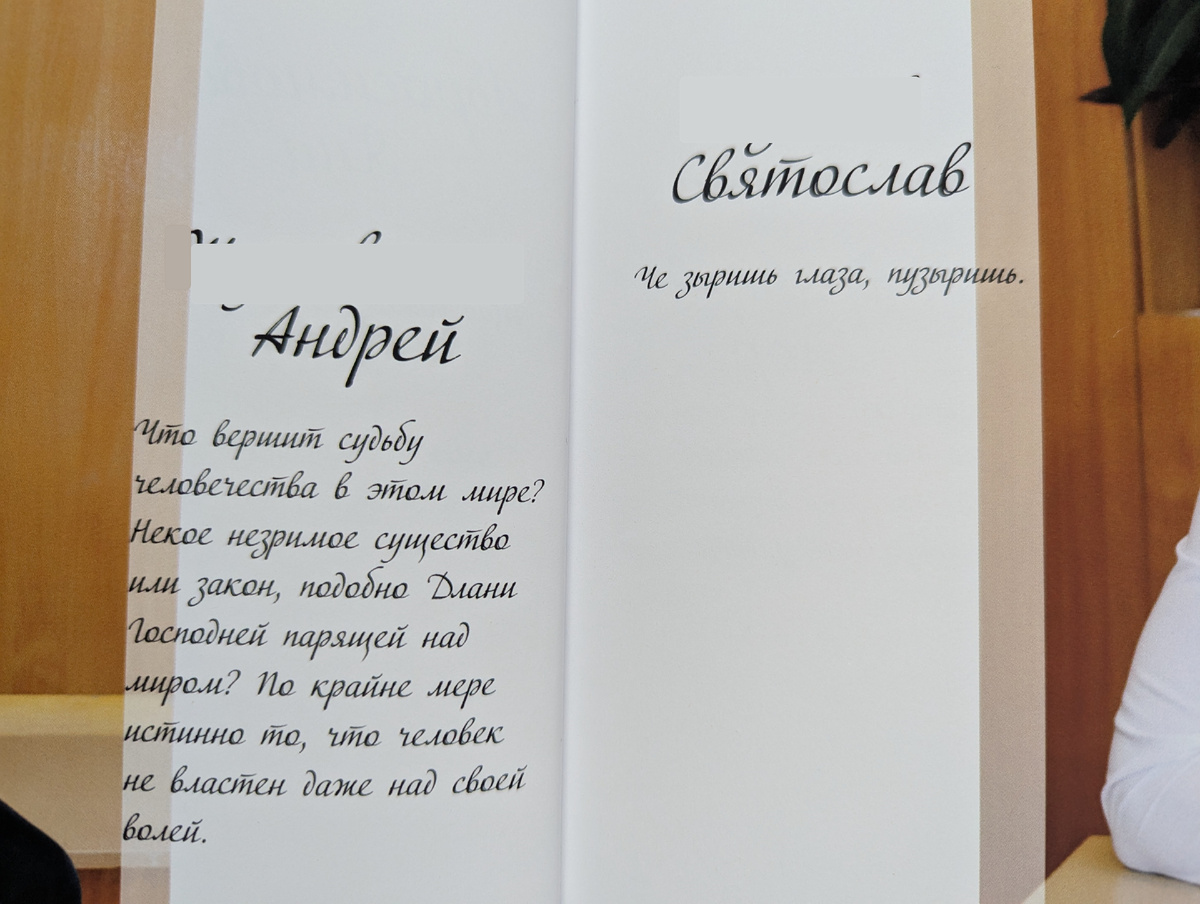 Андрей
Что вершит судьбу
человечества в этом мире?
Некое незримое существо
или закон, подобно Длани
Господней парящей над
миром? По крайне мере
истинно то, что человек
не властен даже над своей
волей.
Святослав
Че зыришь глаза, пузыришь.